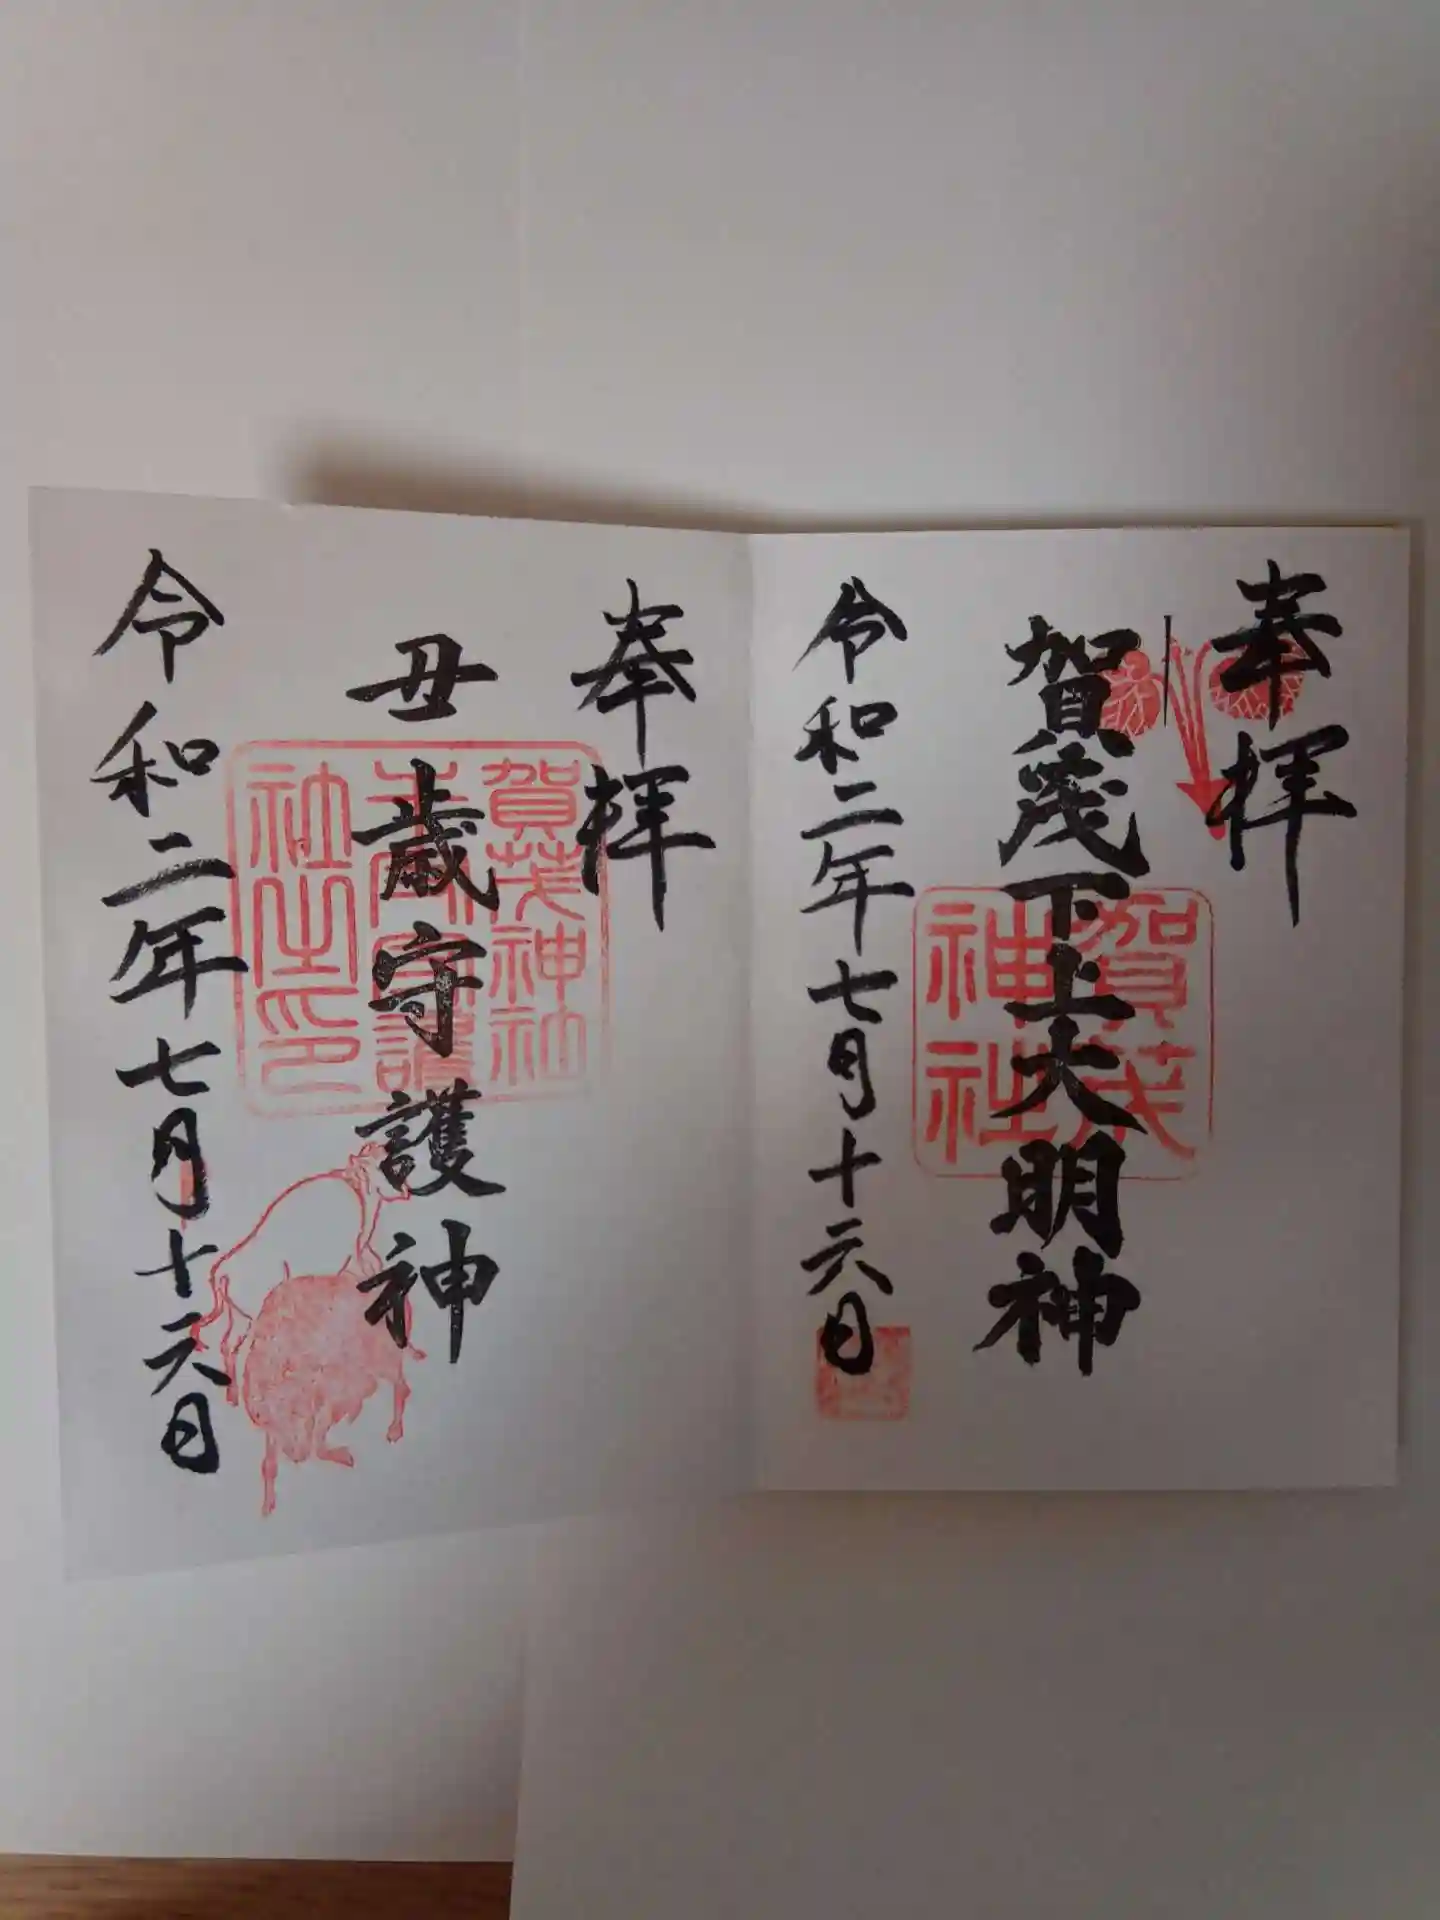 奉拝
賀茂下上大明神
令和二年七月十六日
賀茂
神社
奉拝
丑歳守護神
令和二年七月十六日
賀茂神社
社之印